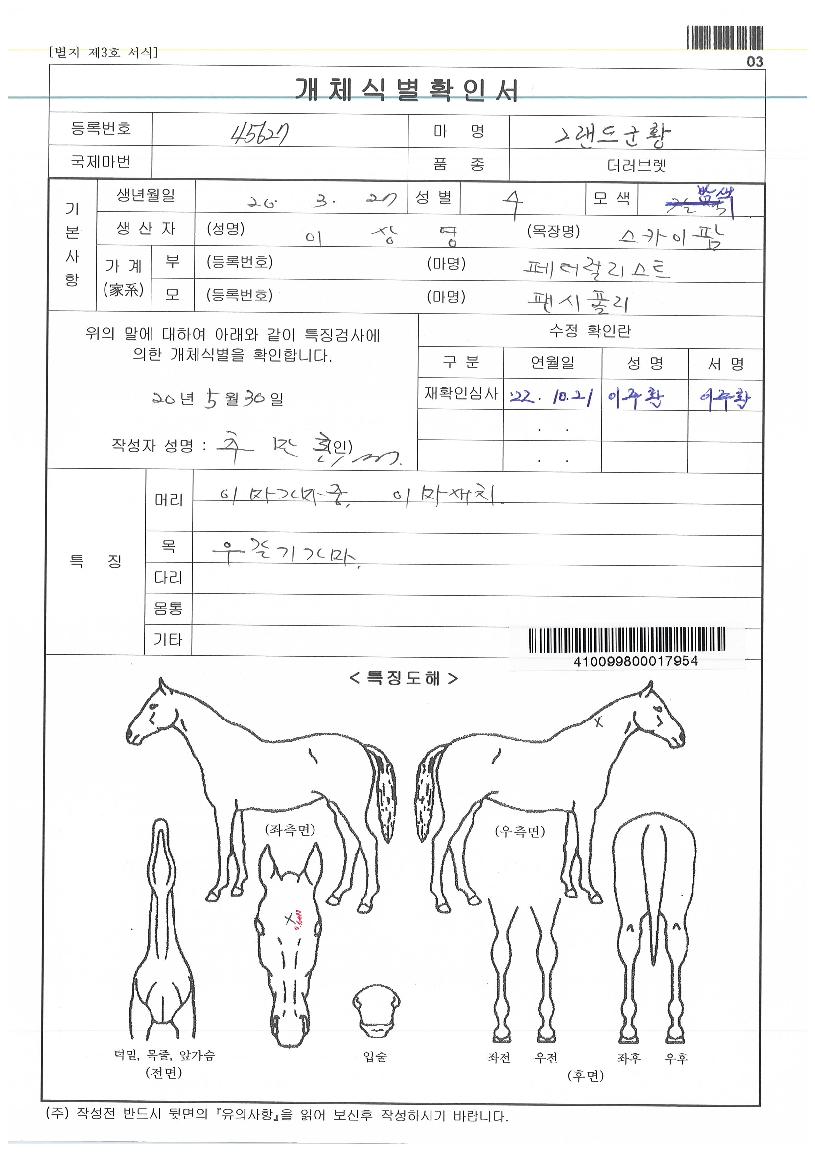 [별지 제3호 서식]
03
개체식별확인서
등록번호 45627 마 명 그랜드군황
국제마번 품 종 더러브렛
기본사항
생년월일 20. 3. 27 성별 수 모색 밤색
생산자 (성명) 이 상 영 (목장명) 스카이팜
가계(家系) 부 (등록번호) (마명) 페더럴리스트
모 (등록번호) (마명) 팬시폴리
위의 말에 대하여 아래와 같이 특징검사에
의한 개체식별을 확인합니다.
20년 5월 30일
작성자 성명 : (인)
수정 확인란
구 분 연월일 성 명 서 명
재확인심사 '22. 10. 21 이주환 이주환
. .
. .
특 징
머리 이마가마중, 이마새치.
목 우줄기가마.
다리
몽통
기타
410099800017954
< 특징도해 >
(좌측면) (우측면)
턱밑, 목줄, 앞가슴
(전면)
입술
좌전 우전 좌후 우후
(후면)
(주) 작성전 반드시 뒷면의 『유의사항』을 읽어 보신후 작성하시기 바랍니다.